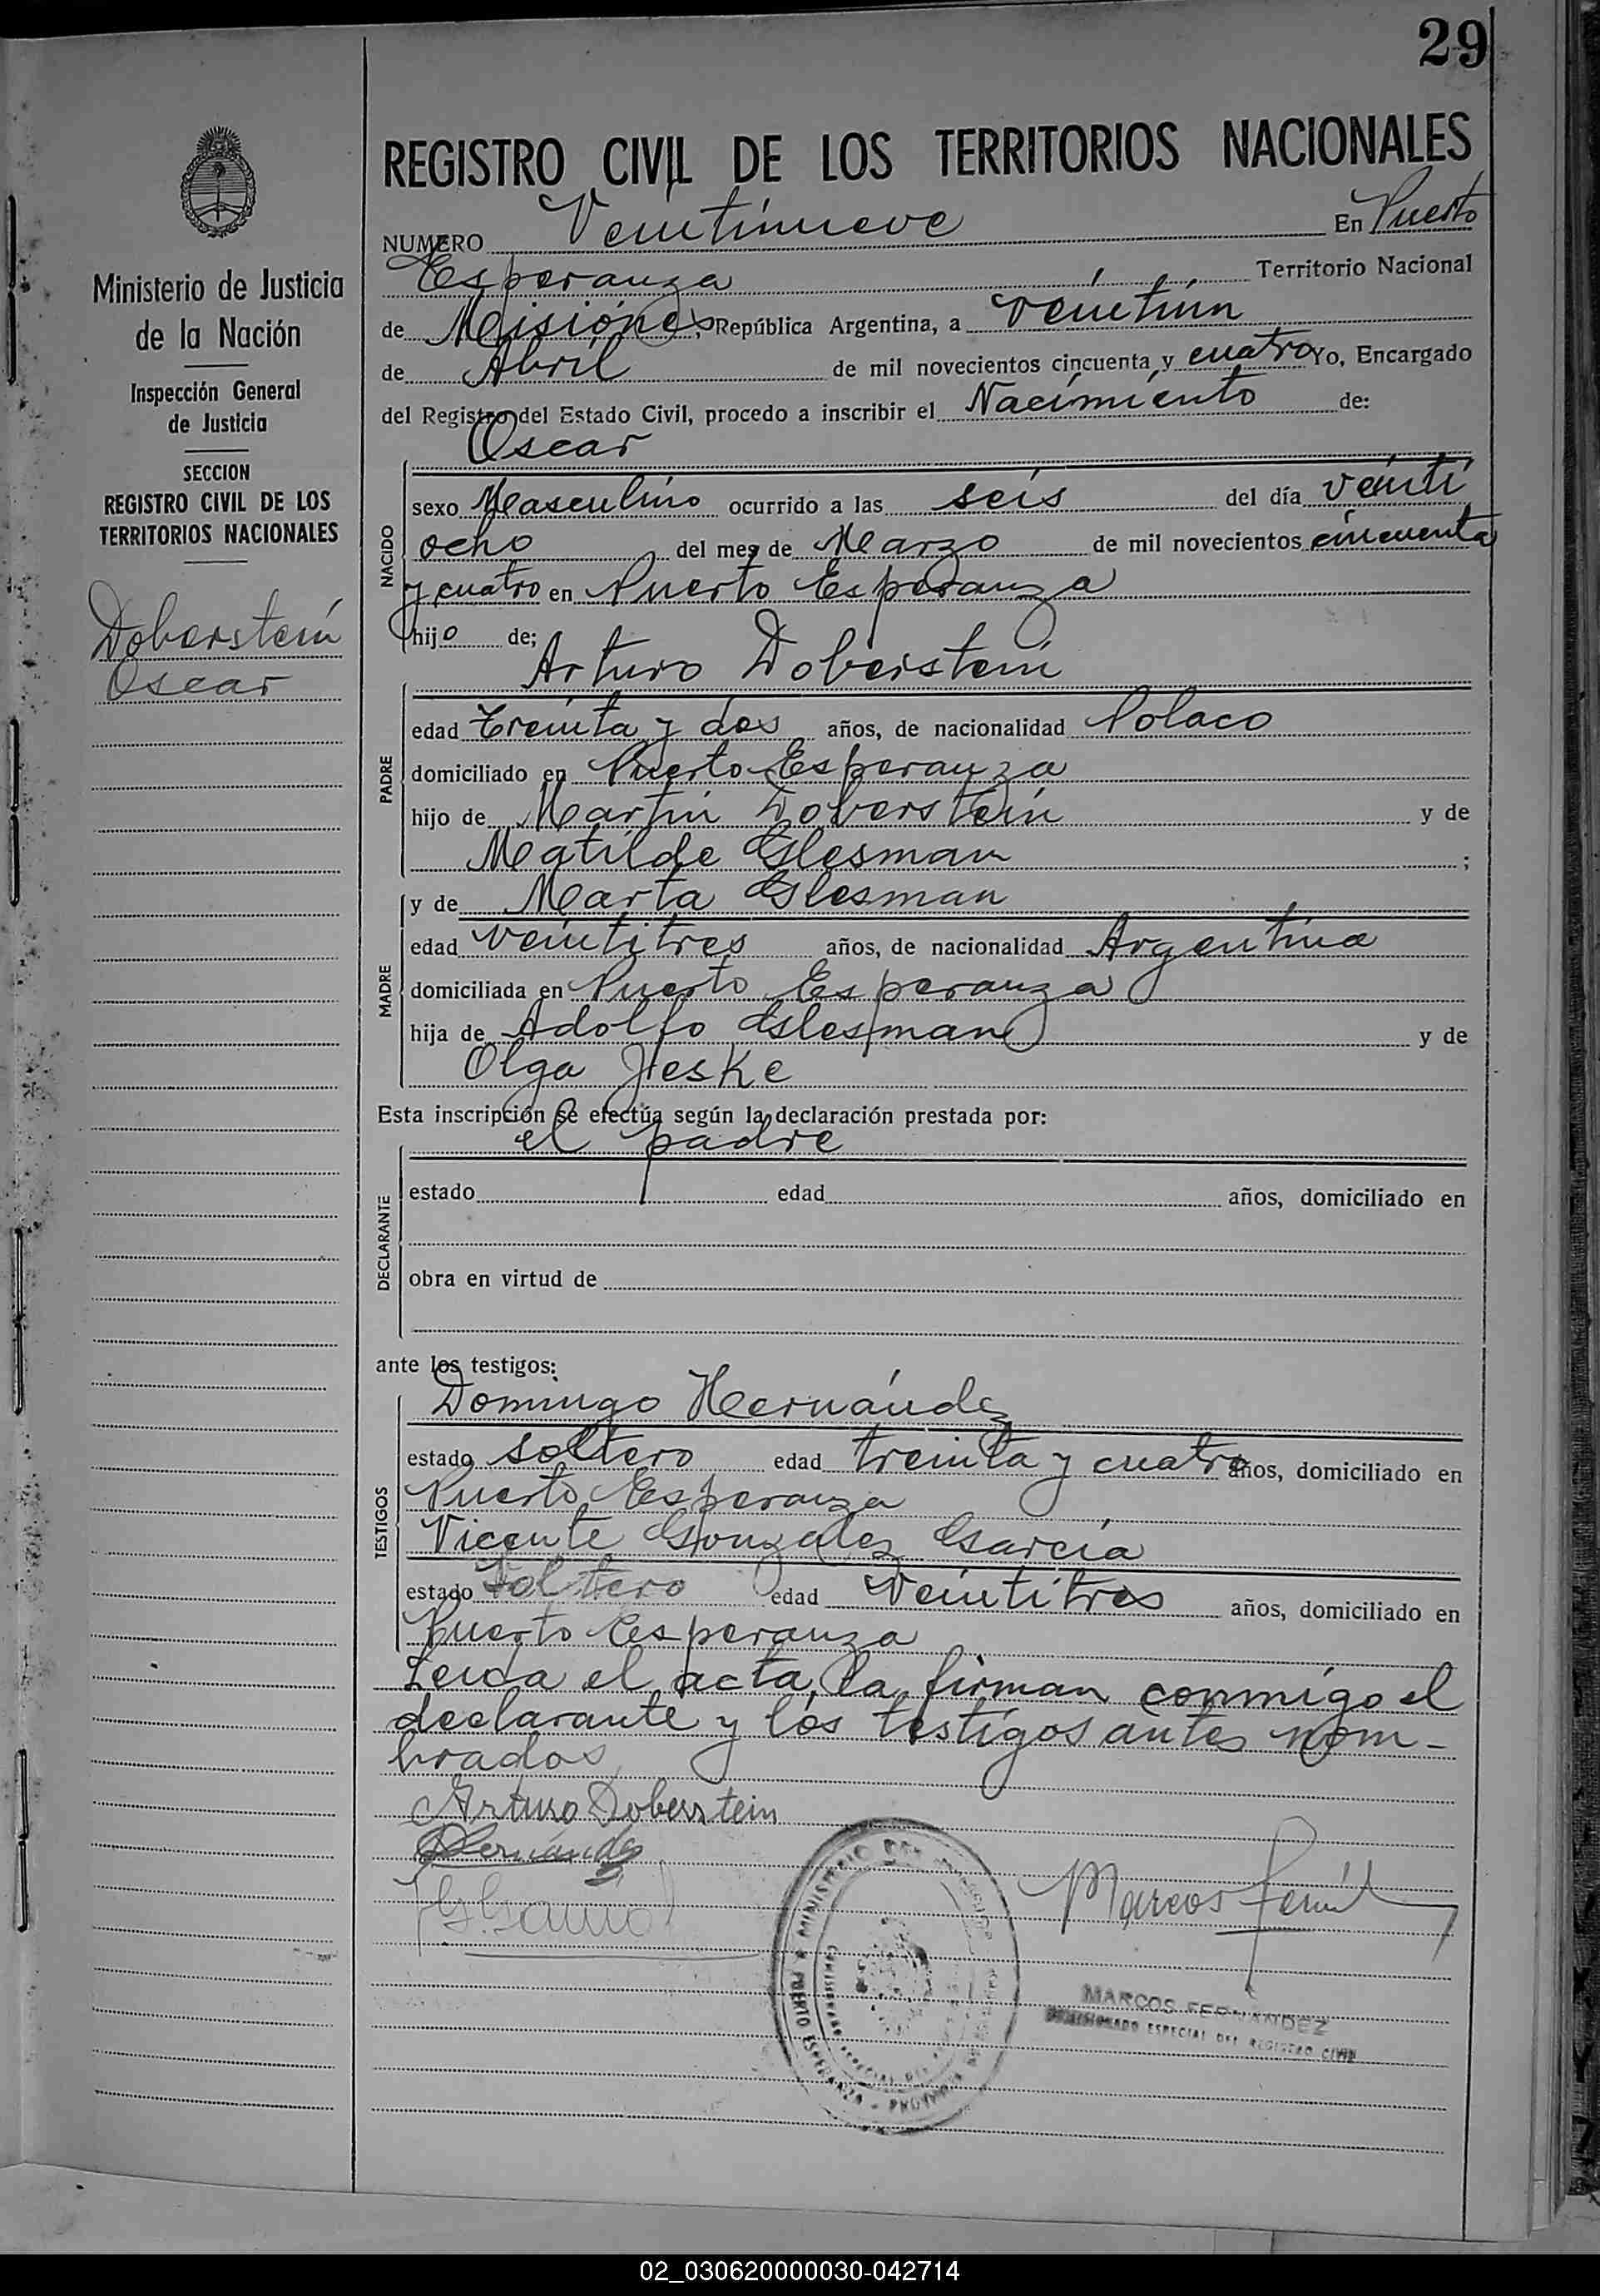 29
REGISTRO CIVIL DE LOS TERRITORIOS NACIONALES
NUMERO Veintinueve En Puerto
Esperanza Territorio Nacional
de Misiones, República Argentina, a veintiún
de Abril de mil novecientos cincuenta y cuatro Yo, Encargado
del Registro del Estado Civil, procedo a inscribir el Nacimiento de:
Oscar
NACIDO
sexo Masculino ocurrido a las seis del día veinti
ocho del mes de Marzo de mil novecientos cincuenta
y cuatro en Puerto Esperanza
hijo de;
Arturo Doberstein
PADRE
edad treinta y dos años, de nacionalidad Polaco
domiciliado en Puerto Esperanza
hijo de Martin Doberstein y de
Matilde Glesman ;
MADRE
y de Marta Glesman
edad veintitres años, de nacionalidad Argentina
domiciliada en Puerto Esperanza
hija de Adolfo Glesman y de
Olga Jeske
Esta inscripción se efectúa según la declaración prestada por:
el padre
DECLARANTE
estado edad años, domiciliado en
obra en virtud de
ante los testigos:
TESTIGOS
Domingo Hernández
estado soltero edad treinta y cuatro años, domiciliado en
Puerto Esperanza
Vicente Gonzalez García
estado soltero edad veintitres años, domiciliado en
Puerto Esperanza
Leida el acta, la firman conmigo el
declarante y los testigos antes nom-
brados
Arturo Doberstein
Hernández
Marcos
MINISTERIO DEL INTERIOR
PUERTO ESPERANZA
MARCOS FERNANDEZ
COMISIONADO ESPECIAL DEL REGISTRO CIVIL
Ministerio de Justicia
de la Nación
Inspección General
de Justicia
SECCION
REGISTRO CIVIL DE LOS
TERRITORIOS NACIONALES
Doberstein
Oscar
02_030620000030-042714